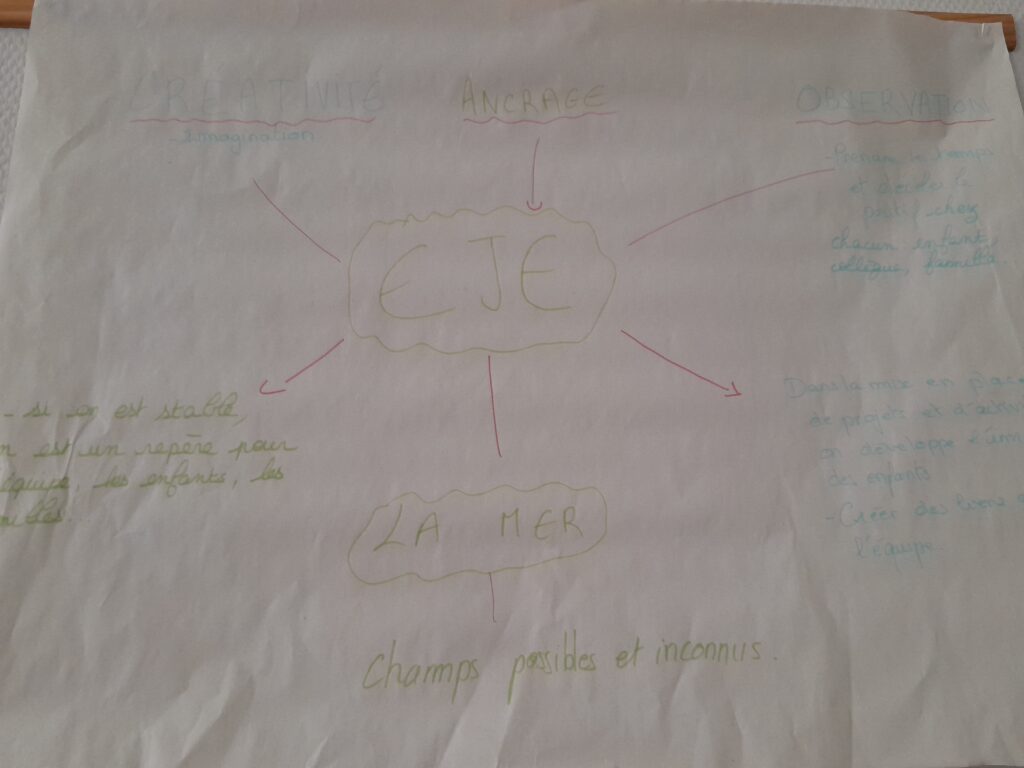 CREATIVITÉ
imagination
ANCRAGE
OBSERVATION
- Prendre le temps
chacun enfant,
collègue, famille.
EJE
- si on est stable,
on est un repère pour
les enfants, les
Dans la mise en place
de projets et d'
on développe
des enfants
- Créer des liens
l'équipe.
LA MER
Champs possibles et inconnus.